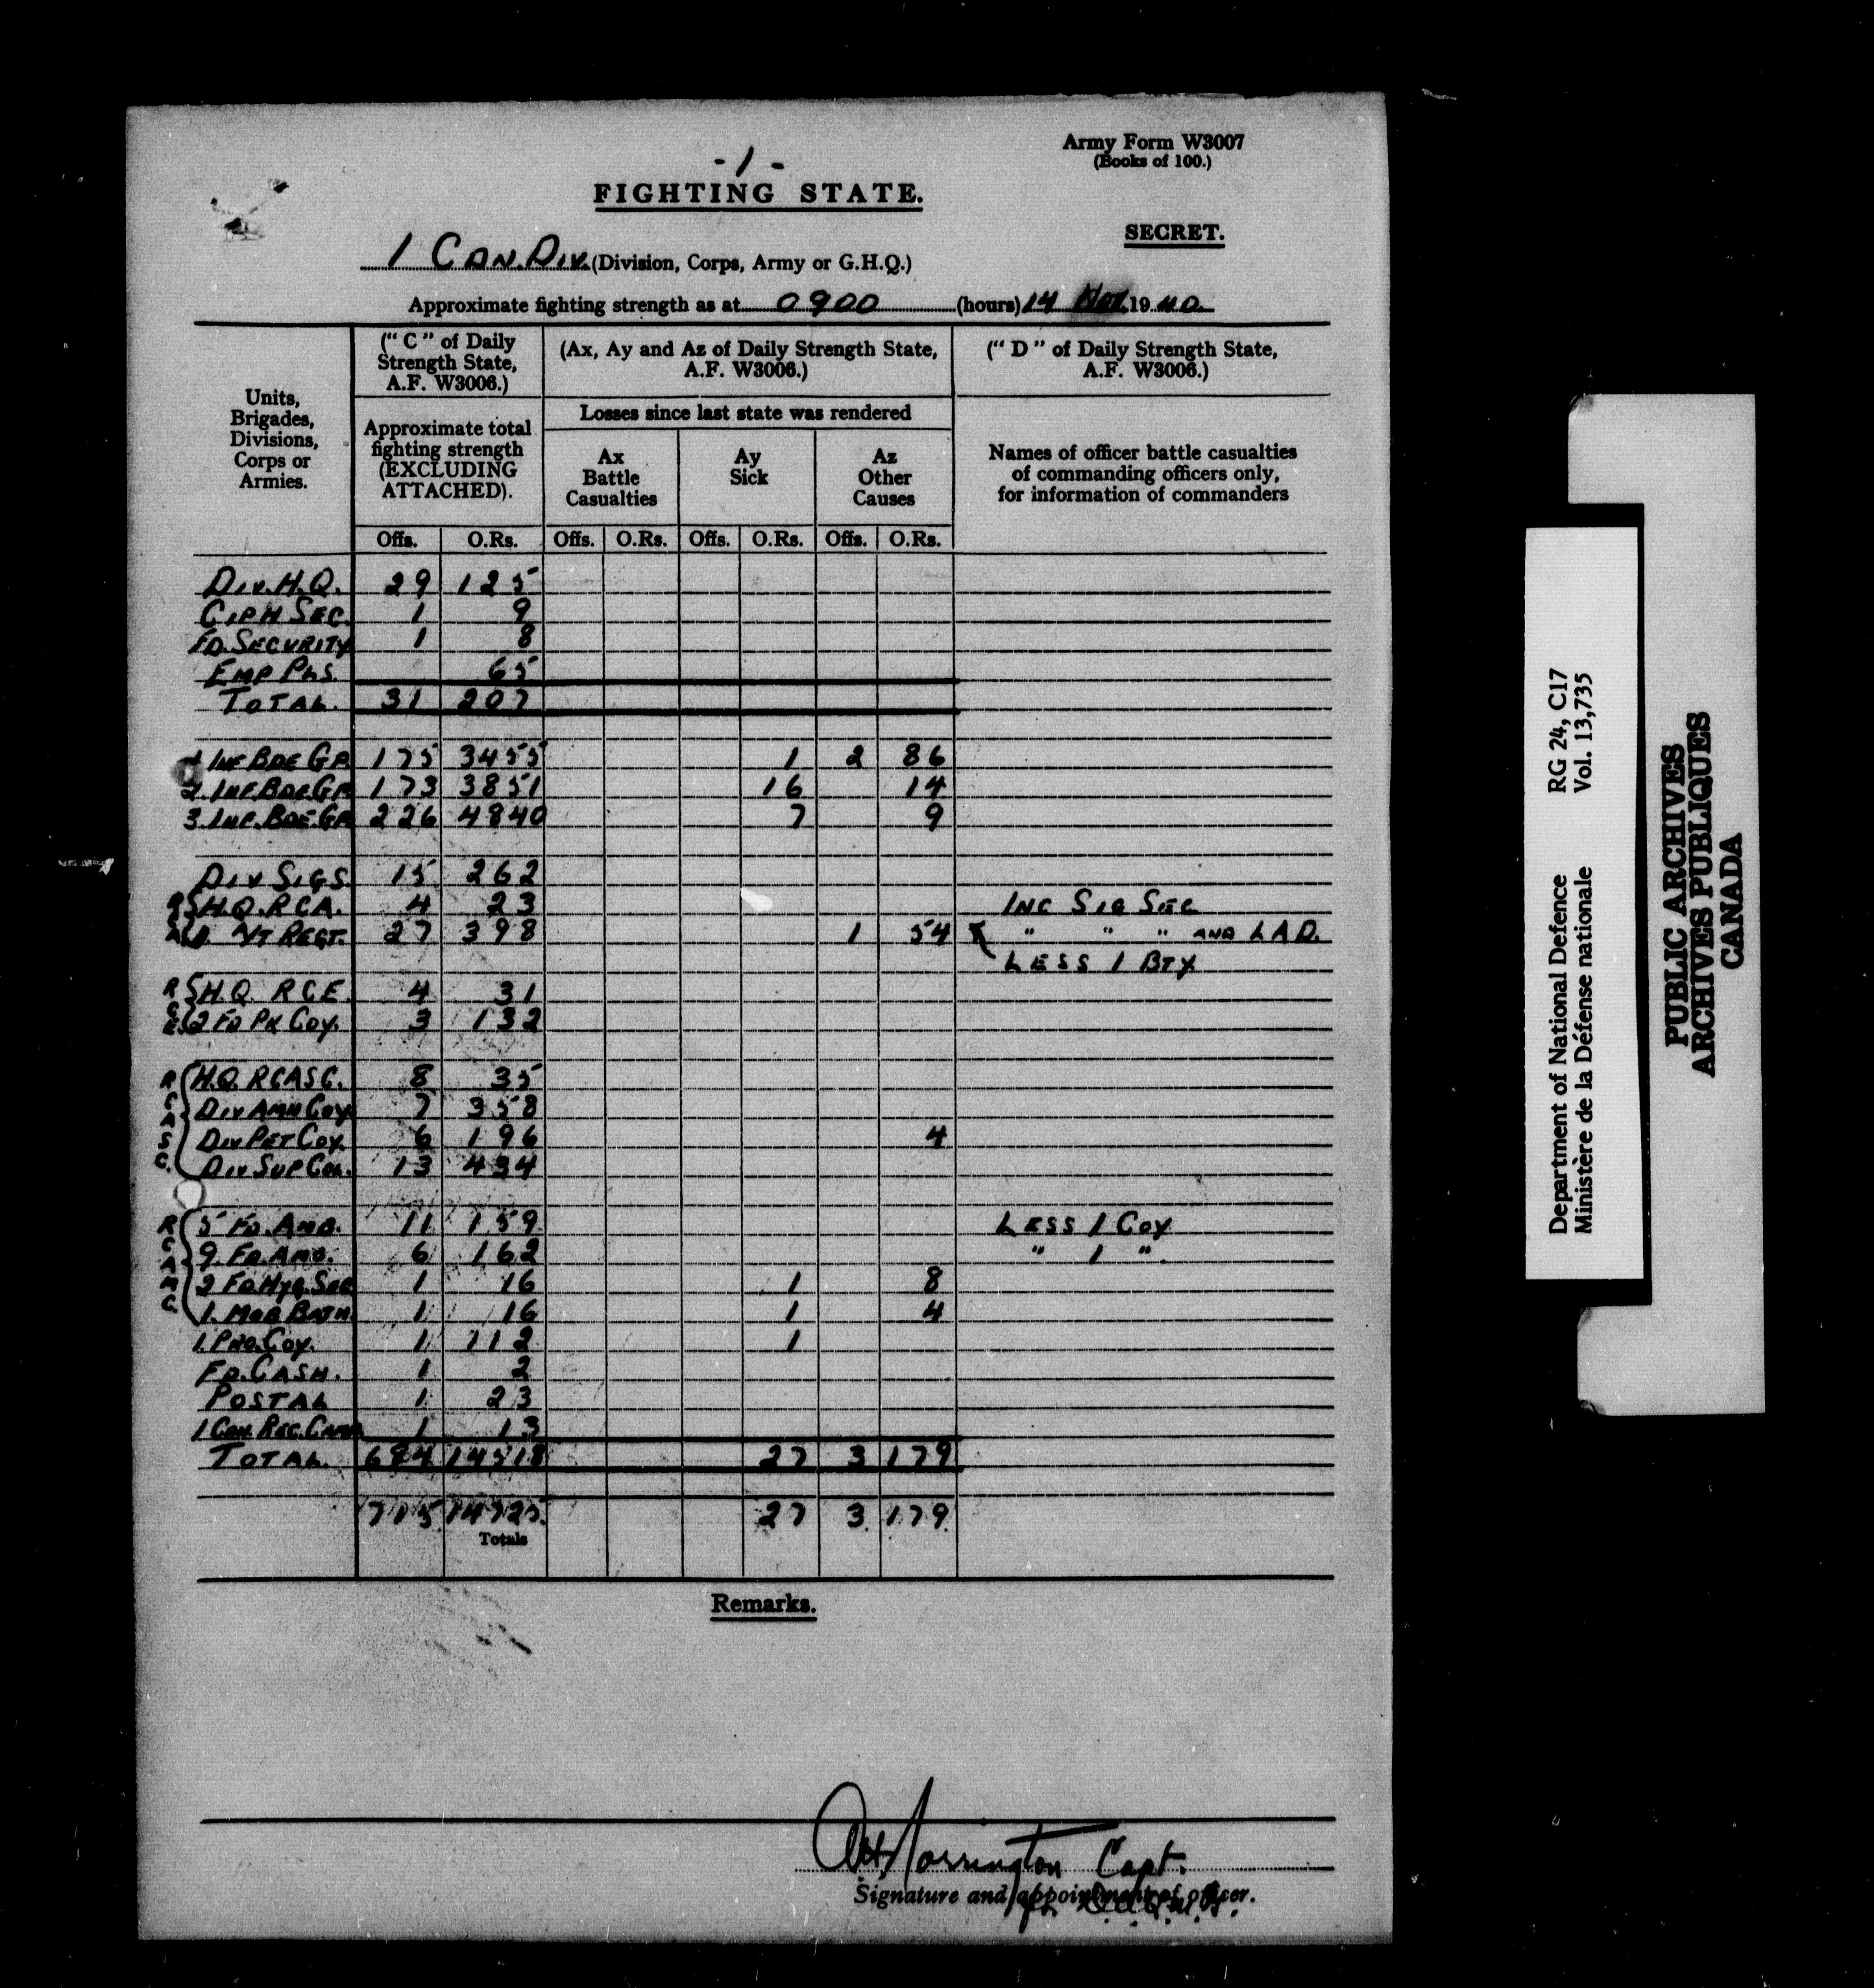 -1-
Army Form W3007
(Books of 100.)
FIGHTING STATE.
SECRET.
1 CDN. DIV. (Division, Corps, Army or G.H.Q.)
Approximate fighting strength as at 0900 (hours) 14 Nov. 1940.
Units, Brigades, Divisions, Corps or Armies.
("C" of Daily Strength State, A.F. W3006.)
(Ax, Ay and Az of Daily Strength State, A.F. W3006.)
("D" of Daily Strength State, A.F. W3006.)
Approximate total fighting strength (EXCLUDING ATTACHED).
Losses since last state was rendered
Ax Battle Casualties
Ay Sick
Az Other Causes
Names of officer battle casualties of commanding officers only, for information of commanders
Offs. O.Rs. Offs. O.Rs. Offs. O.Rs. Offs. O.Rs.
DIV. H.Q. 29 125
CIPH SEC. 1 9
FD. SECURITY 1 8
EMP PLS. 65
TOTAL. 31 207
1 INF BDE GP. 175 3455 1 2 86
2. INF. BDE GP 173 3851 16 14
3. INF. BDE. GP 226 4840 7 9
DIV SIGS. 15 262
RCA H.Q. RCA. 4 23 INC SIG SEC
1. A/T REGT. 27 398 1 54 " " " AND LAD.
LESS 1 BTY
RCE H.Q. RCE. 4 31
2 FD PK COY. 3 132
RCASC. H.Q. RCASC. 8 35
DIV AMN COY. 7 358
DIV PET COY. 6 196 4
DIV SUP COL. 13 434
RCAMC. 5 FD. AMB. 11 159 LESS 1 COY
9. FD. AMB. 6 162 " 1 ".
2 FD. HYG. SEC 1 16 1 8
1. MOB BATH. 1 16 1 4
1. PRO. COY. 1 112 1
FD. CASH. 1 2
POSTAL 1 23
1 CDN. REC. CAMP 1 13
TOTAL. 684 14518 27 3 179
715 14725. 27 3. 179.
Totals
Remarks.
Capt.
Signature and appointment of officer.
Department of National Defence RG 24, C17
Ministère de la Défense nationale Vol. 13,735
PUBLIC ARCHIVES
ARCHIVES PUBLIQUES
CANADA